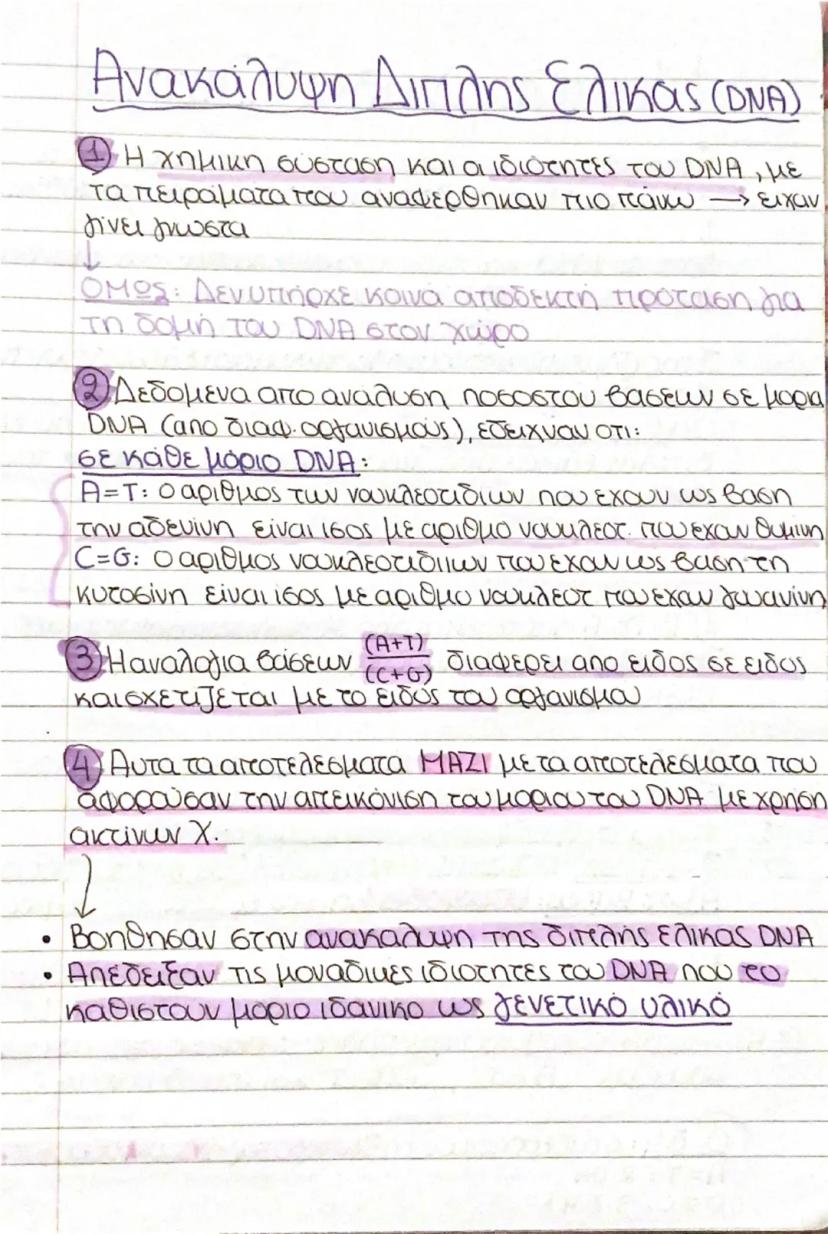 Ανακάλυψη Διπλης Ελικας (DNA)
① Η χημικη σύσταση και οι ιδιότητες του DNA, με
τα πειράματα που αναφέρθηκαν πιο πάνω → ειχαν
γίνει γνωστα
↓
ΌΜΩΣ: Δεν υπήρχε κοινά αποδεκτή πρόταση για
τη δομή του DNA στον χώρο
② Δεδομενα απο ανάλυση ποσοστου βασεων σε μορια
DNA (απο διαφ. οργανισμούς), εδειχναν οτι:
σε κάθε μόριο DNA:
A=T: ο αριθμος των νουκλεοτιδίων που εχουν ως βαση
την αδενίνη είναι ισος με αριθμο νουκλεοτ. που εχουν θυμινη
C=G: ο αριθμος νουκλεοτιδιιων που εχουν ως βαση τη
κυτοσίνη είναι ισος με αριθμο νουκλεοτ που εχουν γουανίνη
③ Η αναλογια βάσεων (A+T)/(C+G) διαφερει απο ειδος σε ειδος
και σχετιζεται με το ειδος του οργανισμου
④ Αυτα τα αποτελεσματα ΜΑΖΙ με τα αποτελεσματα που
αφορούσαν την απεικόνιση του μοριου του DNA με χρηση
ακτίνων Χ.
↓
• Βοηθησαν στην ανακαλυψη της διπλής ελικας DNA
• Απεδειξαν τις μοναδικες ιδιοτητες του DNA που το
καθιστουν μοριο ιδανικο ως γενετικό υλικό